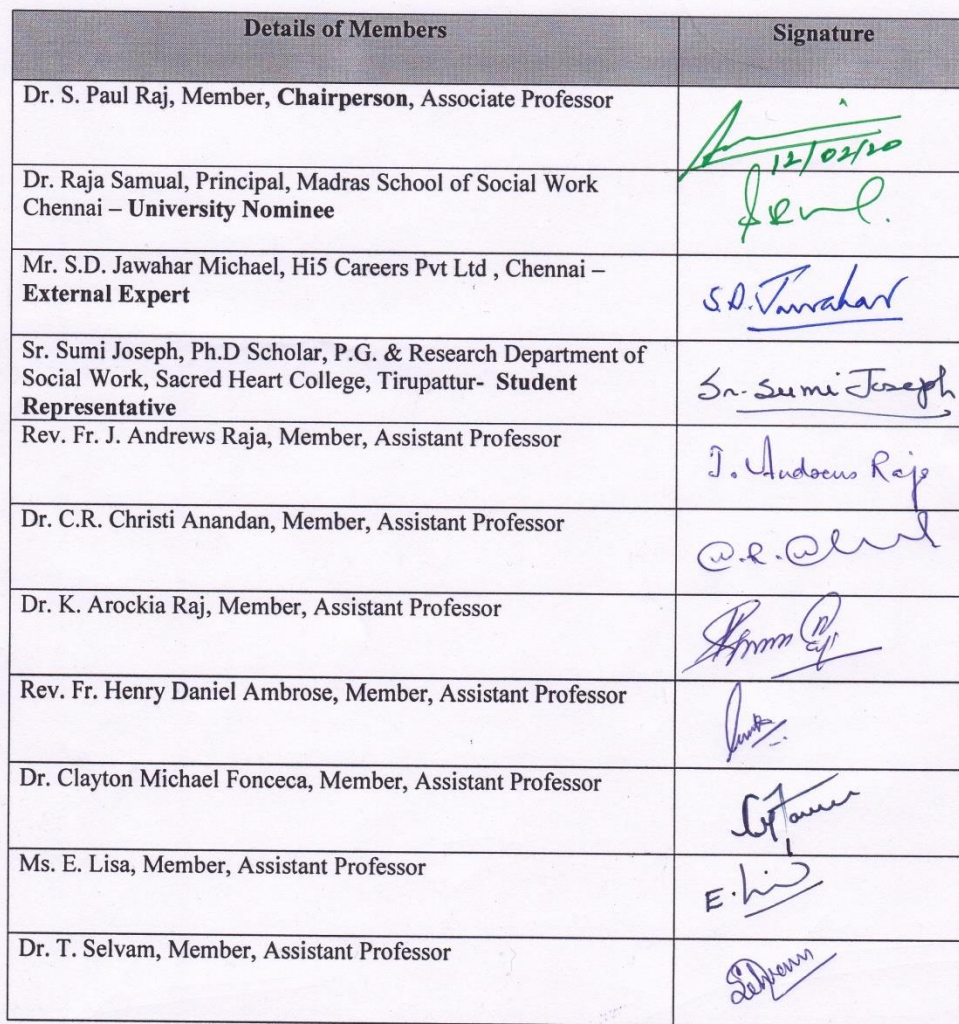 Details of Members Signature
Dr. S. Paul Raj, Member, Chairperson, Associate Professor
12/02/20
Dr. Raja Samual, Principal, Madras School of Social Work
Chennai – University Nominee
Mr. S.D. Jawahar Michael, Hi5 Careers Pvt Ltd , Chennai –
External Expert
S.D. Jawahar
Sr. Sumi Joseph, Ph.D Scholar, P.G. & Research Department of
Social Work, Sacred Heart College, Tirupattur- Student
Representative
Sr. Sumi Joseph
Rev. Fr. J. Andrews Raja, Member, Assistant Professor
J. Andrews Raja
Dr. C.R. Christi Anandan, Member, Assistant Professor
Dr. K. Arockia Raj, Member, Assistant Professor
Rev. Fr. Henry Daniel Ambrose, Member, Assistant Professor
Dr. Clayton Michael Fonceca, Member, Assistant Professor
Ms. E. Lisa, Member, Assistant Professor
Dr. T. Selvam, Member, Assistant Professor
Selvam